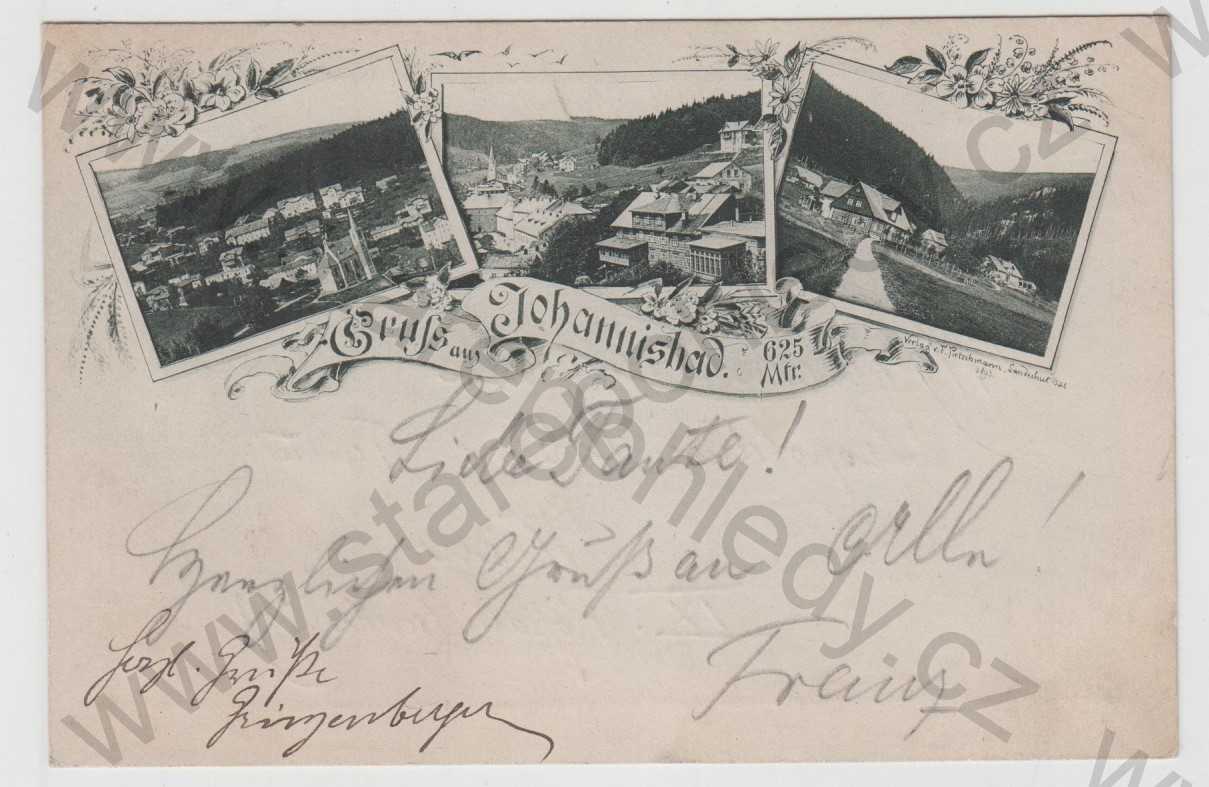 Gruss aus Johannisbad. 625 Mtr.
Verlag v. F. Pietschmann, Landeshut
Liebe Tante!
Herzlichen Gruß an Alle!
Franz
Herzl. Grüße
www.starepohledy.cz